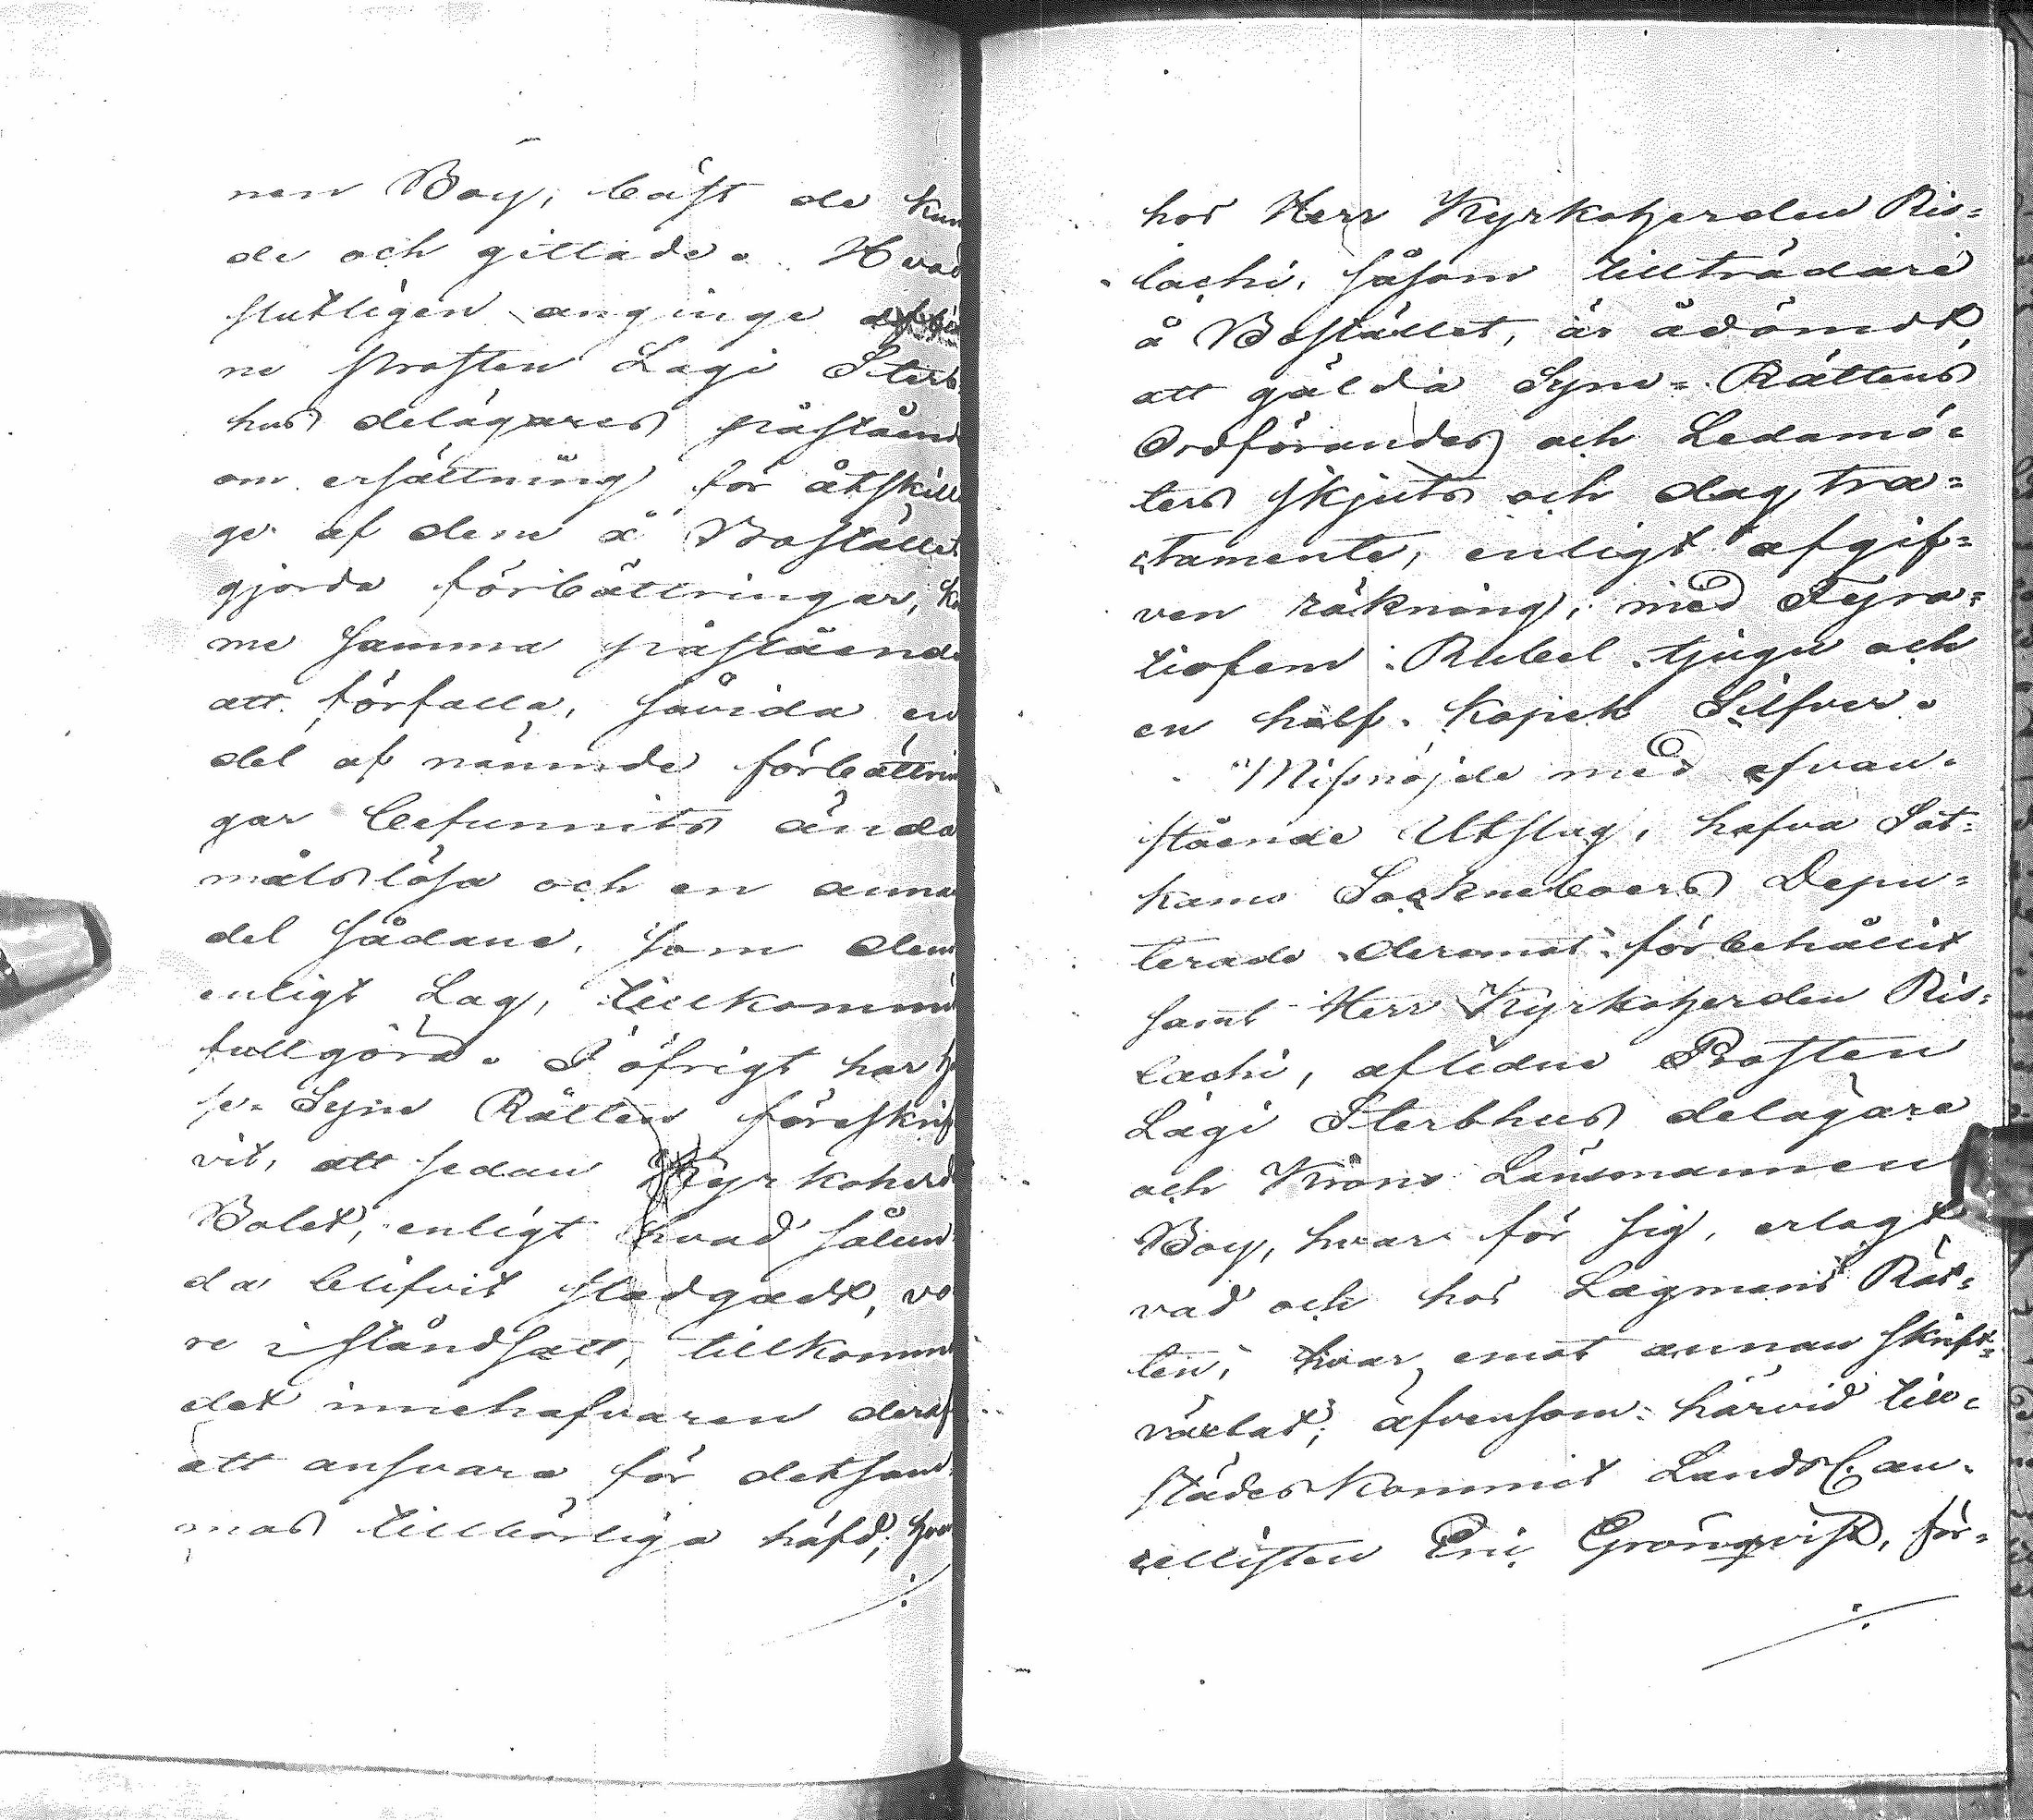 nen Boy, bäst de kun
de och gittade. Hvad
slutligen anginge
ne Prosten Lagi Sterb
hus delägares påstående
om ersättning för åtskilli
ge af dem å Bostället
gjorde förbättringar, ko
me samma påstående
att förfalla, såvida en
del af nämnde förbättrin
gar befunnits ända
målslösa och en anna
del sådane, som dem
enligt Lag, tillkommit
fullgöra. I öfrigt har H
se. Syne Rätten föreskrif
vit, att sedan Kyrkoherde
Bolet, enligt hvad sålun
da blifvit stadgadt, vo
re i ståndsatt, tillkomme
det innehafvaren deraf
att ansvara för detsam
mas tillbörliga häfd; hvar
hos Herr Kyrkoherden Ris=
lachi, såsom tillträdare
å Bostället, är ådömdt
att gälda Syne=Rättens
Ordförandes och Ledamö=
ters skjuts och dag tra=
ctamente, enligt afgif=
ven räkning, med Fyra=
tiofem Rubel tjugu och
en half Kopek Silfver.
Missnöjde med ofvan=
stående Utslag, hafva Sot=
kamo Sockneboers Depu=
terade deremot förbehållit
samt Herr Kyrkoherden Ris=
lachi, aflidne Prosten
Lagi Sterbhus delägare
och Krono Länsmannen
Boy, hvar för sig, erlagt
vad och hos Lagmans Rät=
ten, hvar emot annan skrift=
växlat; äfvensom härvid till=
städes kommit Lands Can=
cellisten Eric Grönqvist, för=